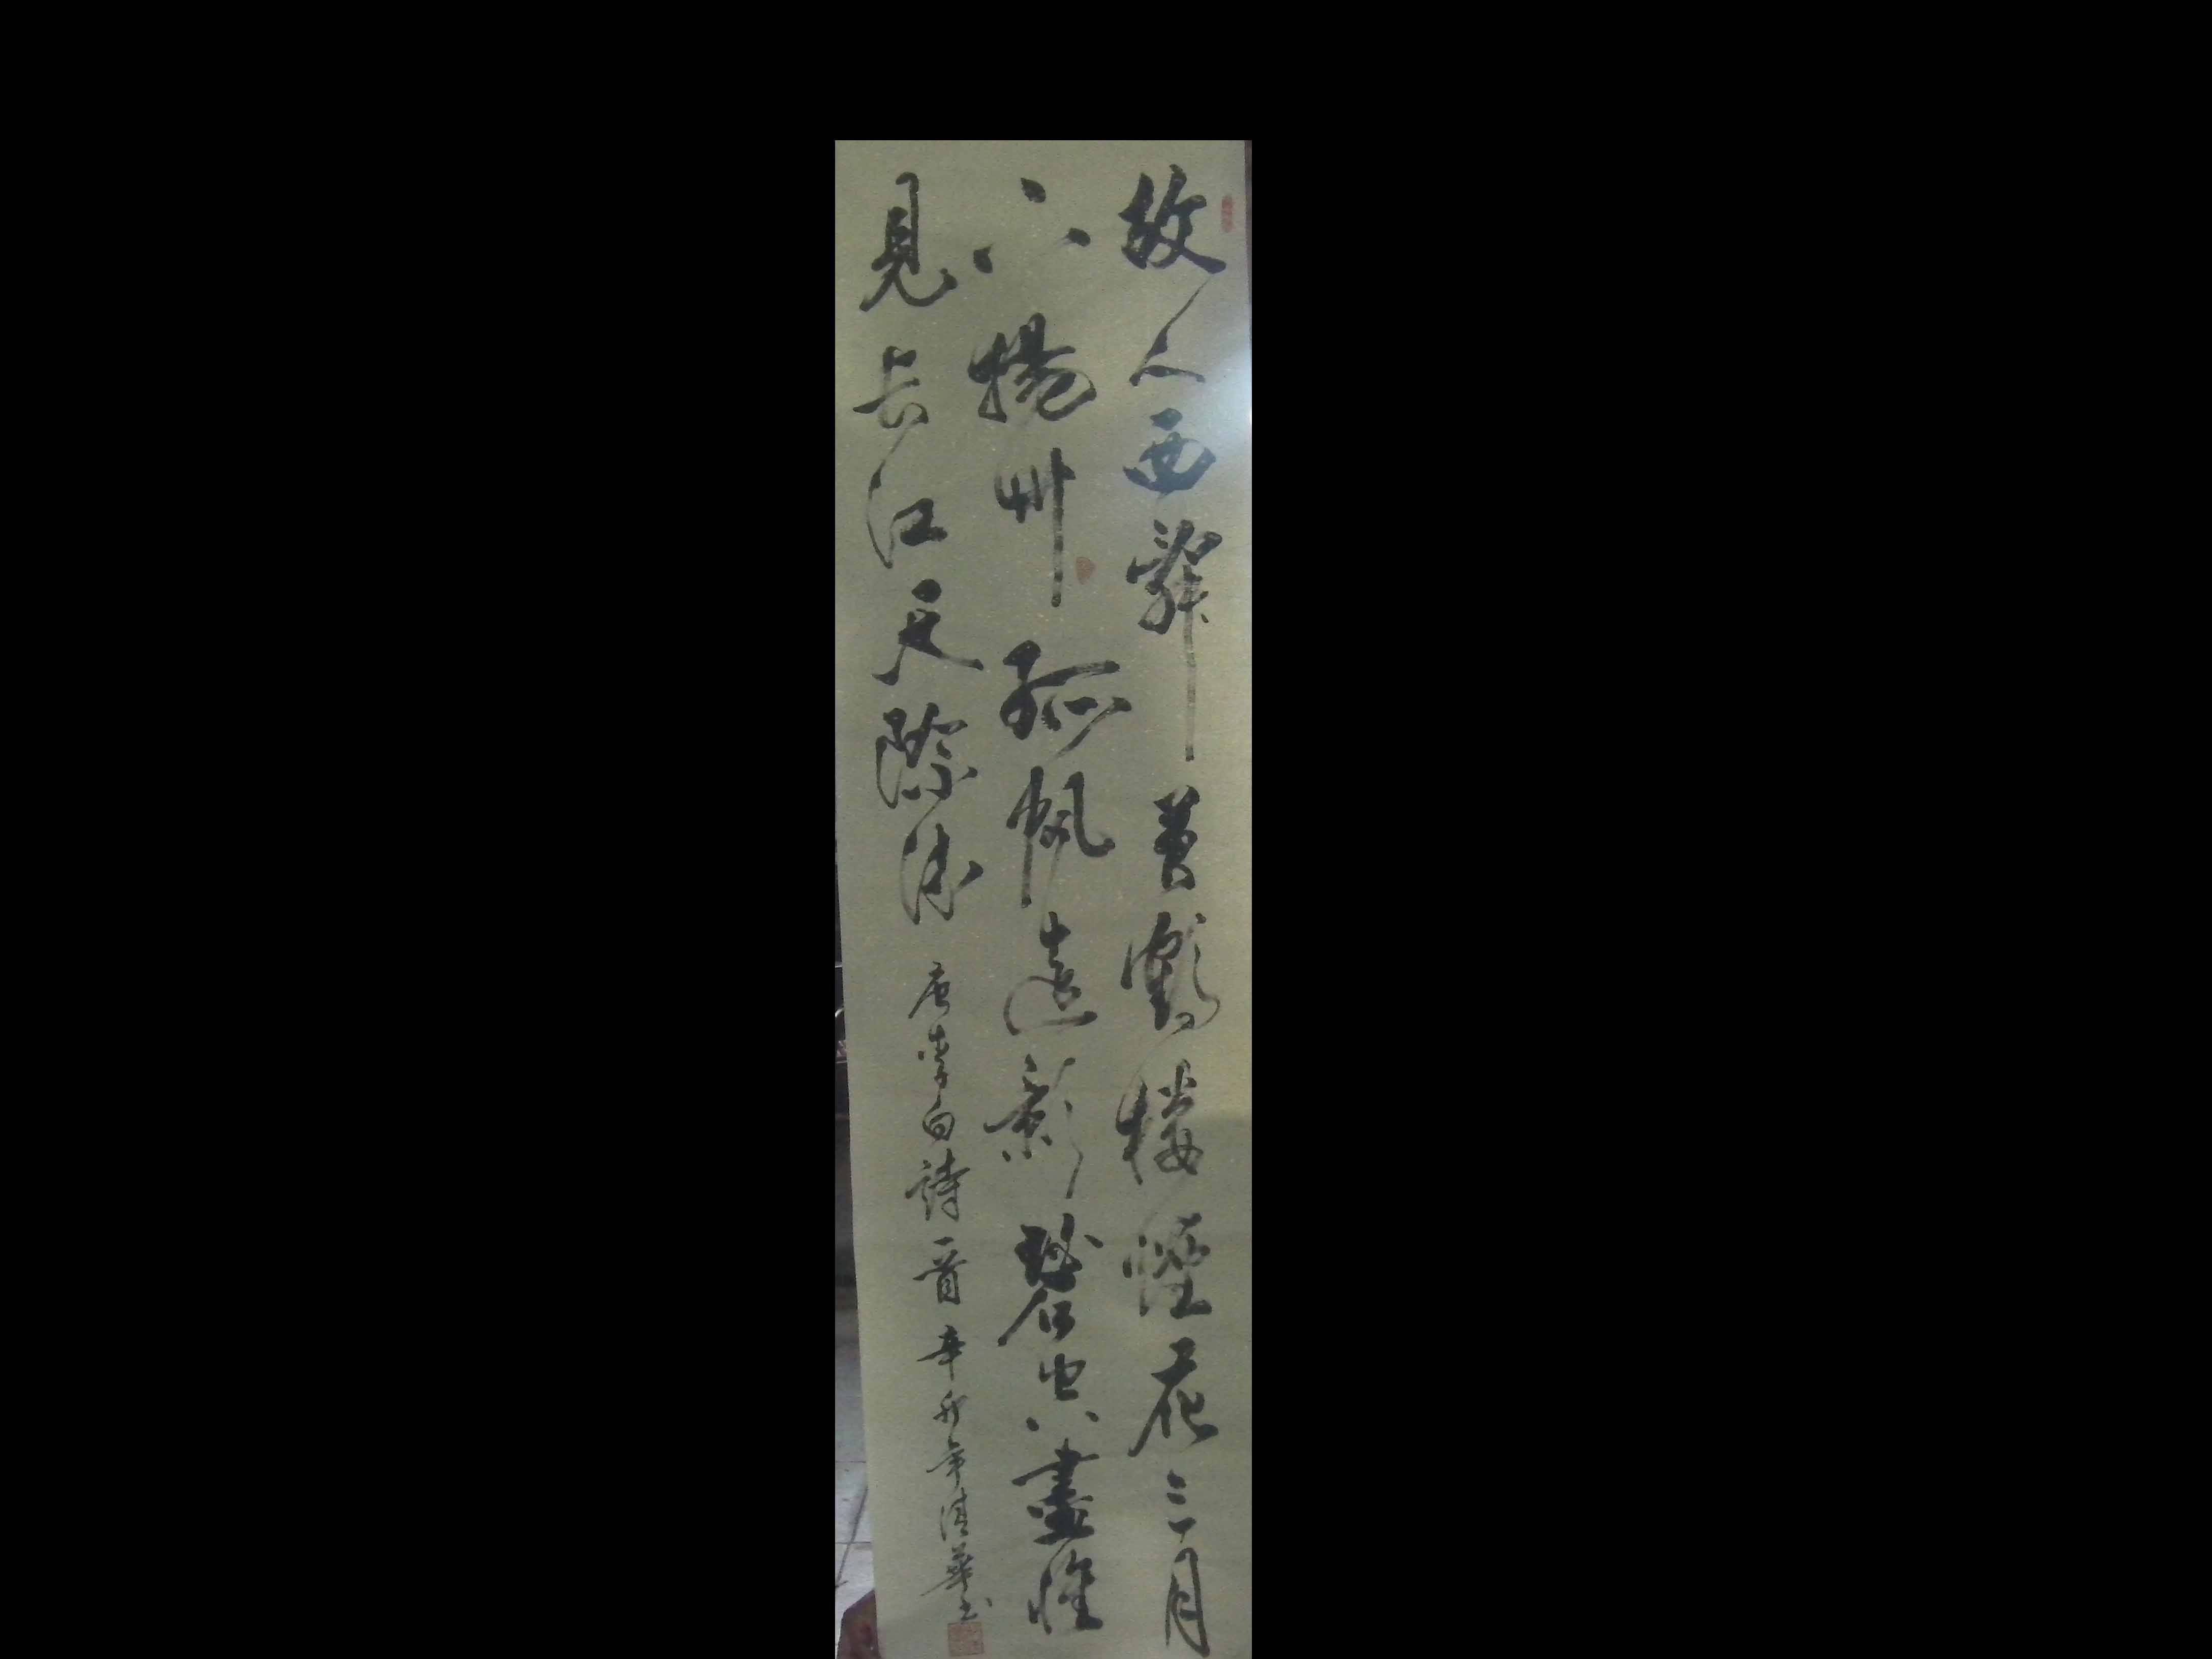 故人西辭黃鶴樓煙花三月
下揚州孤帆遠影碧空盡惟
見長江天際流
唐李白詩一首辛卯年清華书